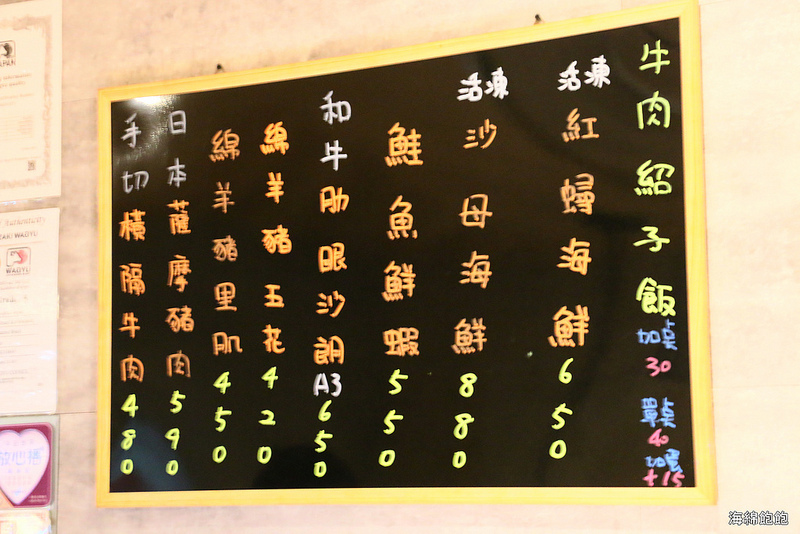 牛肉紹子飯 加点 30 單点 40 加蛋 +15
活凍 紅蟳海鮮 650
活凍 沙母海鮮 880
鮭魚鮮蝦 550
和牛肋眼沙朗 A3 650
綿羊豬五花 420
綿羊豬里肌 450
日本薩摩豬肉 590
手切橫隔牛肉 480
WAGYU
放心捲
海綿飽飽